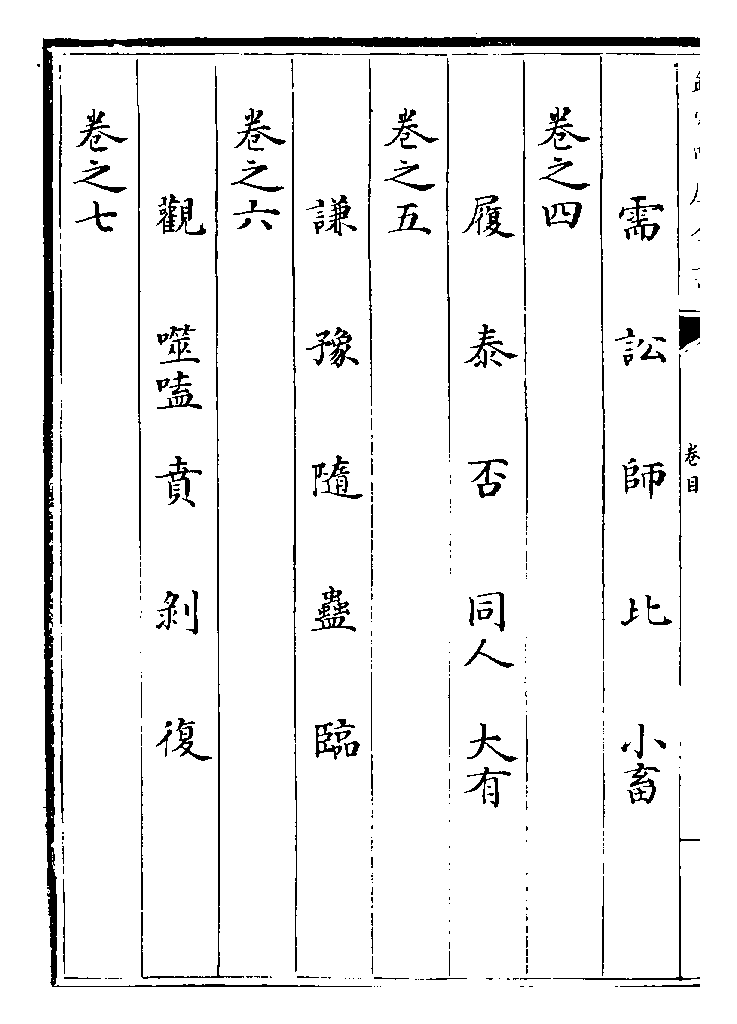 卷目
需 訟 師 比 小畜
卷之四
履 泰 否 同人 大有
卷之五
謙 豫 隨 蠱 臨
卷之六
觀 噬嗑 賁 剝 復
卷之七